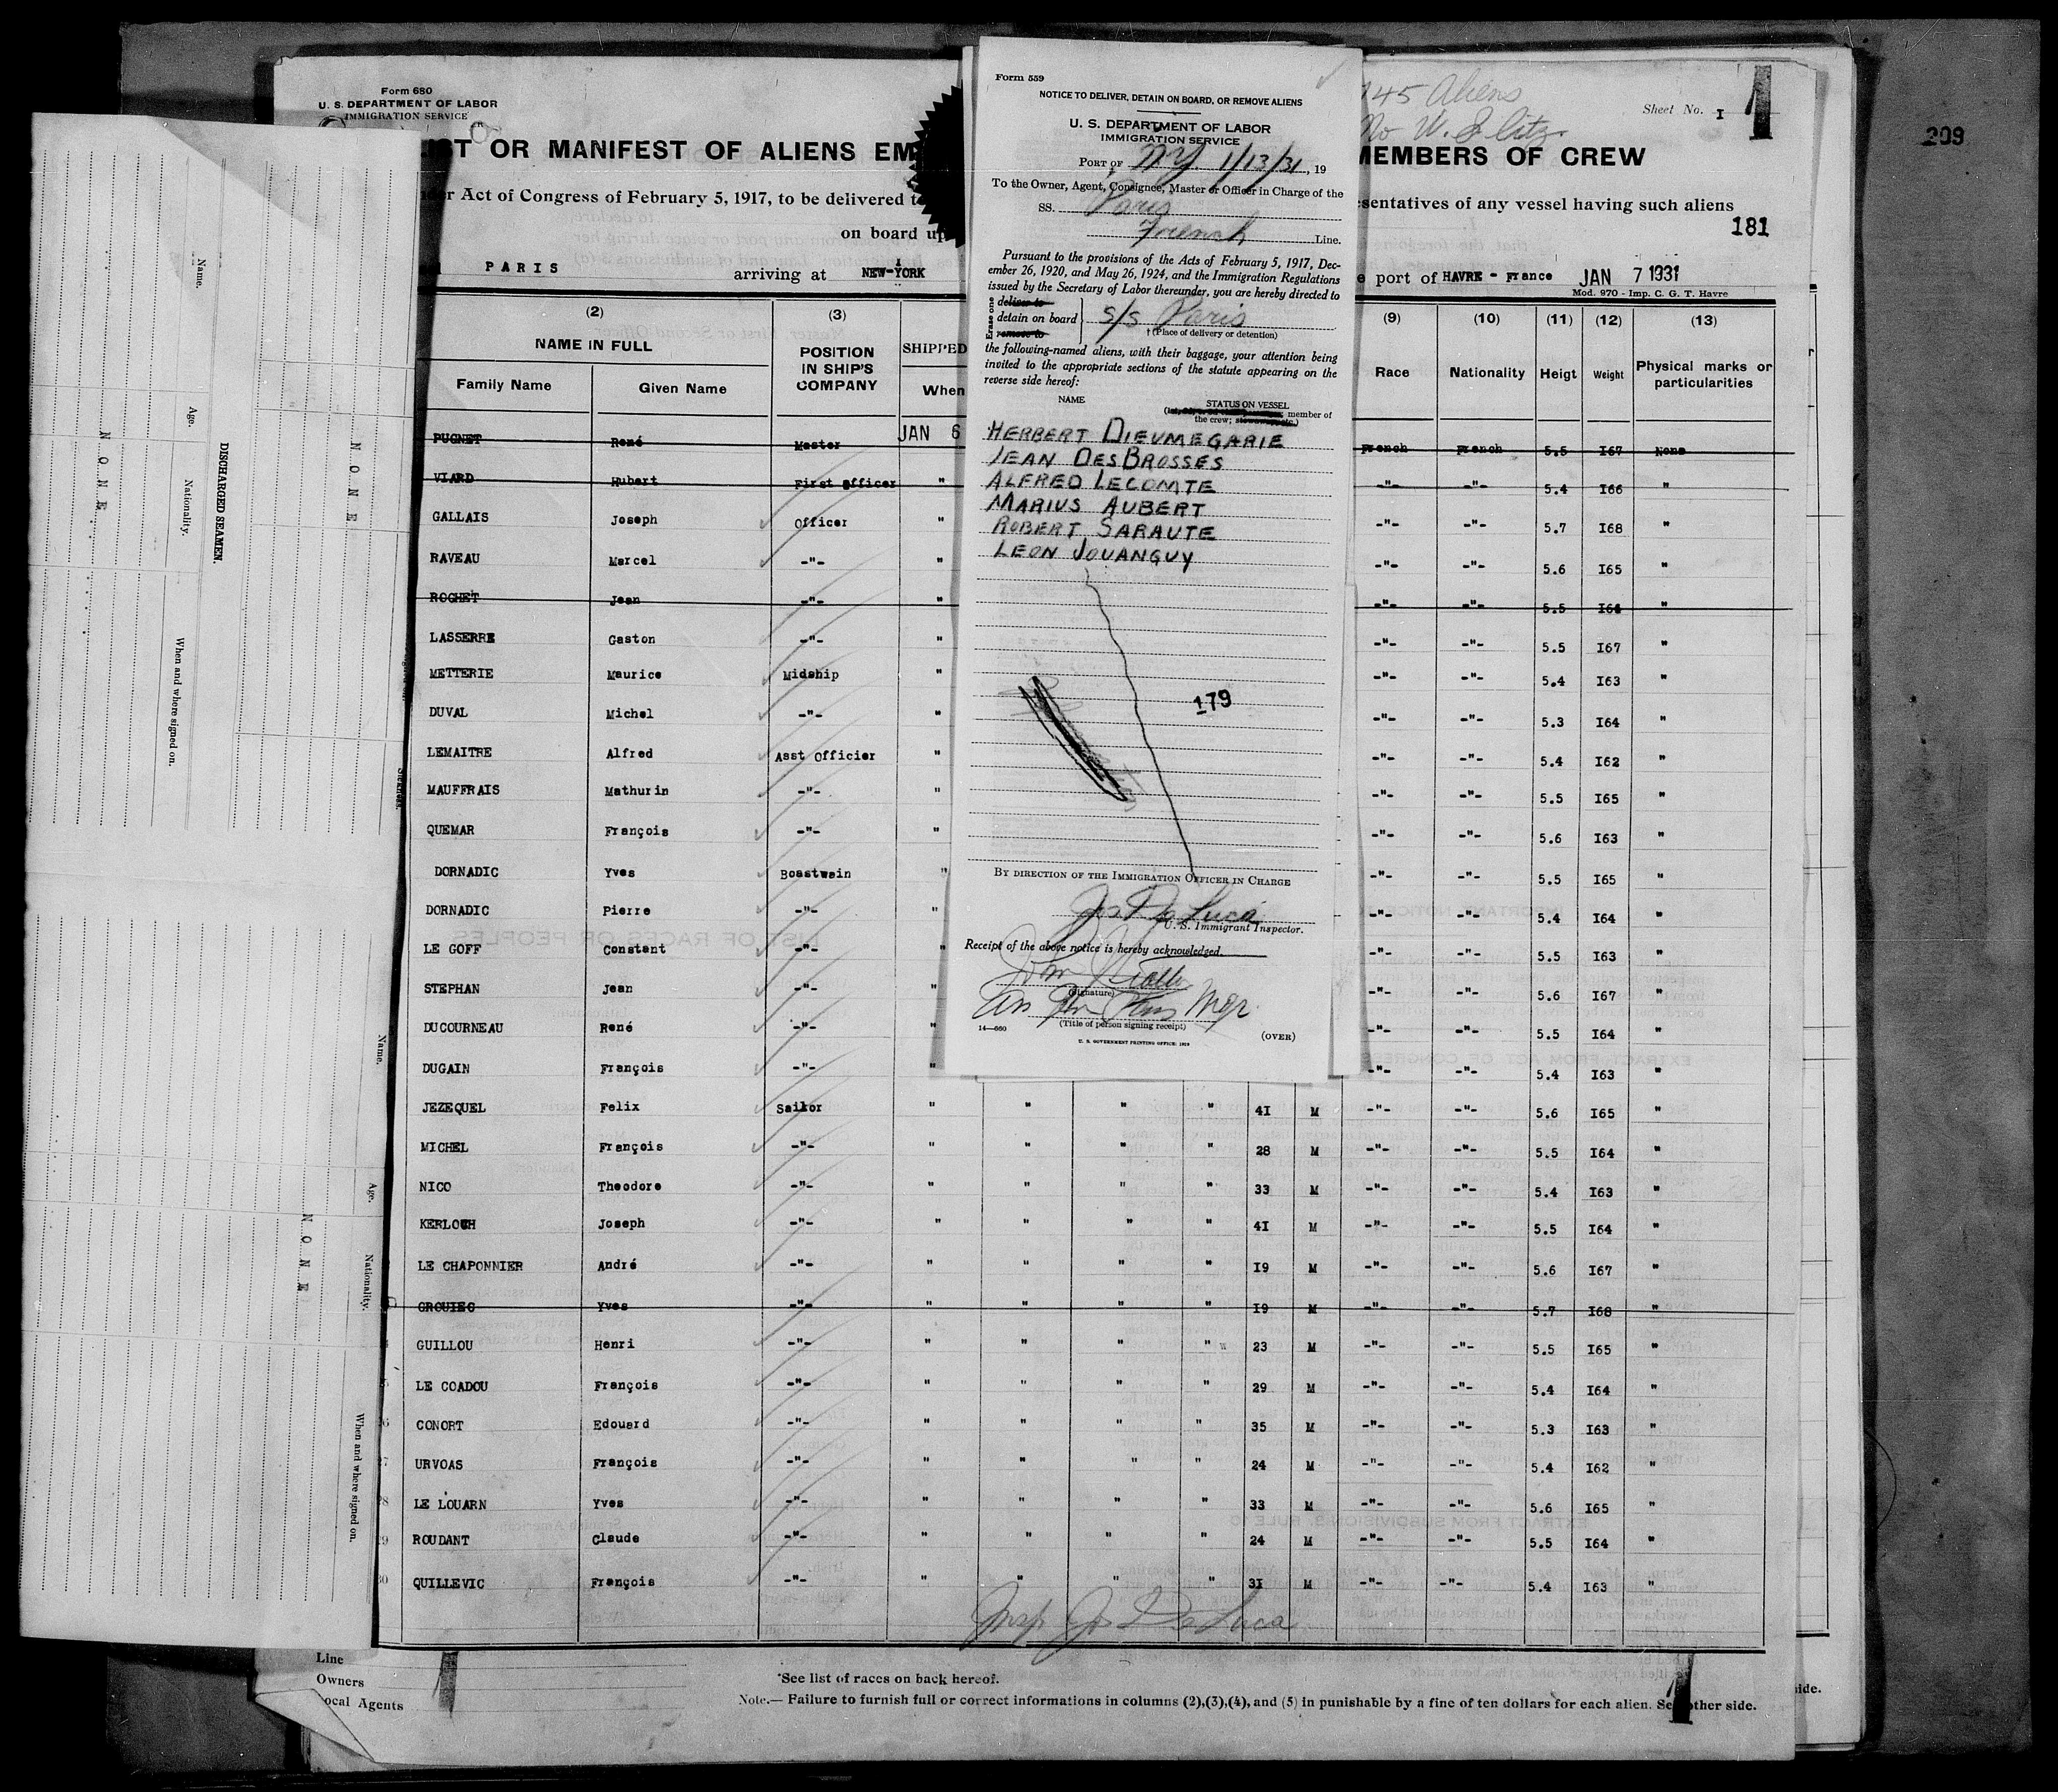 Form 680
U. S. DEPARTMENT OF LABOR
IMMIGRATION SERVICE
LIST OR MANIFEST OF ALIENS EM
MEMBERS OF CREW
Act of Congress of February 5, 1917, to be delivered t
esentatives of any vessel having such aliens
on board up
181
PARIS arriving at NEW-YORK
port of HAVRE - France JAN 7 1931
Mod. 970 - Imp. C. G. T. Havre
145 Aliens
Sheet No. I
209
Form 559
NOTICE TO DELIVER, DETAIN ON BOARD, OR REMOVE ALIENS
U. S. DEPARTMENT OF LABOR
IMMIGRATION SERVICE
PORT OF NY. 1/13/31, 19
To the Owner, Agent, Consignee, Master or Officer in Charge of the
SS. Paris
French Line.
Pursuant to the provisions of the Acts of February 5, 1917, Dec-
ember 26, 1920, and May 26, 1924, and the Immigration Regulations
issued by the Secretary of Labor thereunder, you are hereby directed to
Erase one
deliver to
detain on board S/S Paris
remove to
† (Place of delivery or detention)
the following-named aliens, with their baggage, your attention being
invited to the appropriate sections of the statute appearing on the
reverse side hereof:
NAME STATUS ON VESSEL
member of
the crew;
HERBERT DIEUMEGARIE
JEAN DESBROSSES
ALFRED LECOMTE
MARIUS AUBERT
ROBERT SARAUTE
LEON JOUANGUY
179
BY DIRECTION OF THE IMMIGRATION OFFICER IN CHARGE
Jos De Luca
U. S. Immigrant Inspector.
Receipt of the above notice is hereby acknowledged.
(Signature)
Mgr.
14—660 (Title of person signing receipt)
(OVER)
U. S. GOVERNMENT PRINTING OFFICE: 1929
(2) (3) (9) (10) (11) (12) (13)
NAME IN FULL POSITION IN SHIP'S COMPANY SHIPPED Race Nationality Heigt Weight Physical marks or particularities
Family Name Given Name When
PUGNET René Master JAN 6 French French 5.5 I67 None
VIARD Hubert First officer " -"- -"- 5.4 I66 "
GALLAIS Joseph Officer " -"- -"- 5.7 I68 "
RAVEAU Marcel -"- " -"- -"- 5.6 I65 "
ROCHET Jean -"- " -"- -"- 5.5 I64 "
LASSERRE Gaston -"- " -"- -"- 5.5 I67 "
METTERIE Maurice Midship " -"- -"- 5.4 I63 "
DUVAL Michel -"- " -"- -"- 5.3 I64 "
LEMAITRE Alfred Asst Officier " -"- -"- 5.4 I62 "
MAUFFRAIS Mathurin -"- " -"- -"- 5.5 I65 "
QUEMAR François -"- " -"- -"- 5.6 I63 "
DORNADIC Yves Boastwain " -"- -"- 5.5 I65 "
DORNADIC Pierre -"- " -"- -"- 5.4 I64 "
LE GOFF Constant -"- " -"- -"- 5.5 I63 "
STEPHAN Jean -"- " -"- -"- 5.6 I67 "
DUCOURNEAU René -"- " -"- -"- 5.5 I64 "
DUGAIN François -"- " -"- -"- 5.4 I63 "
JEZEQUEL Felix Sailor " " " " 4I M -"- -"- 5.6 I65 "
MICHEL François -"- " " " " 28 M -"- -"- 5.5 I64 "
NICO Theodore -"- " " " " 33 M -"- -"- 5.4 I63 "
KERLOCH Joseph -"- " " " " 4I M -"- -"- 5.5 I64 "
LE CHAPONNIER André -"- " " " " I9 M -"- -"- 5.6 I67 "
GROUIEC Yves -"- " " " " I9 M -"- -"- 5.7 I68 "
GUILLOU Henri -"- " " " " 23 M -"- -"- 5.5 I65 "
LE COADOU François -"- " " " " 29 M -"- -"- 5.4 I64 "
CONORT Edouard -"- " " " " 35 M -"- -"- 5.3 I63 "
URVOAS François -"- " " " " 24 M -"- -"- 5.4 I62 "
LE LOUARN Yves -"- " " " " 33 M -"- -"- 5.6 I65 "
ROUDANT Claude -"- " " " " 24 M -"- -"- 5.5 I64 "
30 QUILLEVIC François -"- " " " " 3I M -"- -"- 5.4 I63 "
Insp Jos De Luca
Line
Owners
Local Agents
*See list of races on back hereof.
Note.— Failure to furnish full or correct informations in columns (2),(3),(4), and (5) in punishable by a fine of ten dollars for each alien. See other side.
side.
Name. Age. Nationality. When and where signed on.
DISCHARGED SEAMEN.
NONE
NONE
Name. Age. Nationality. When and where signed on.
NONE